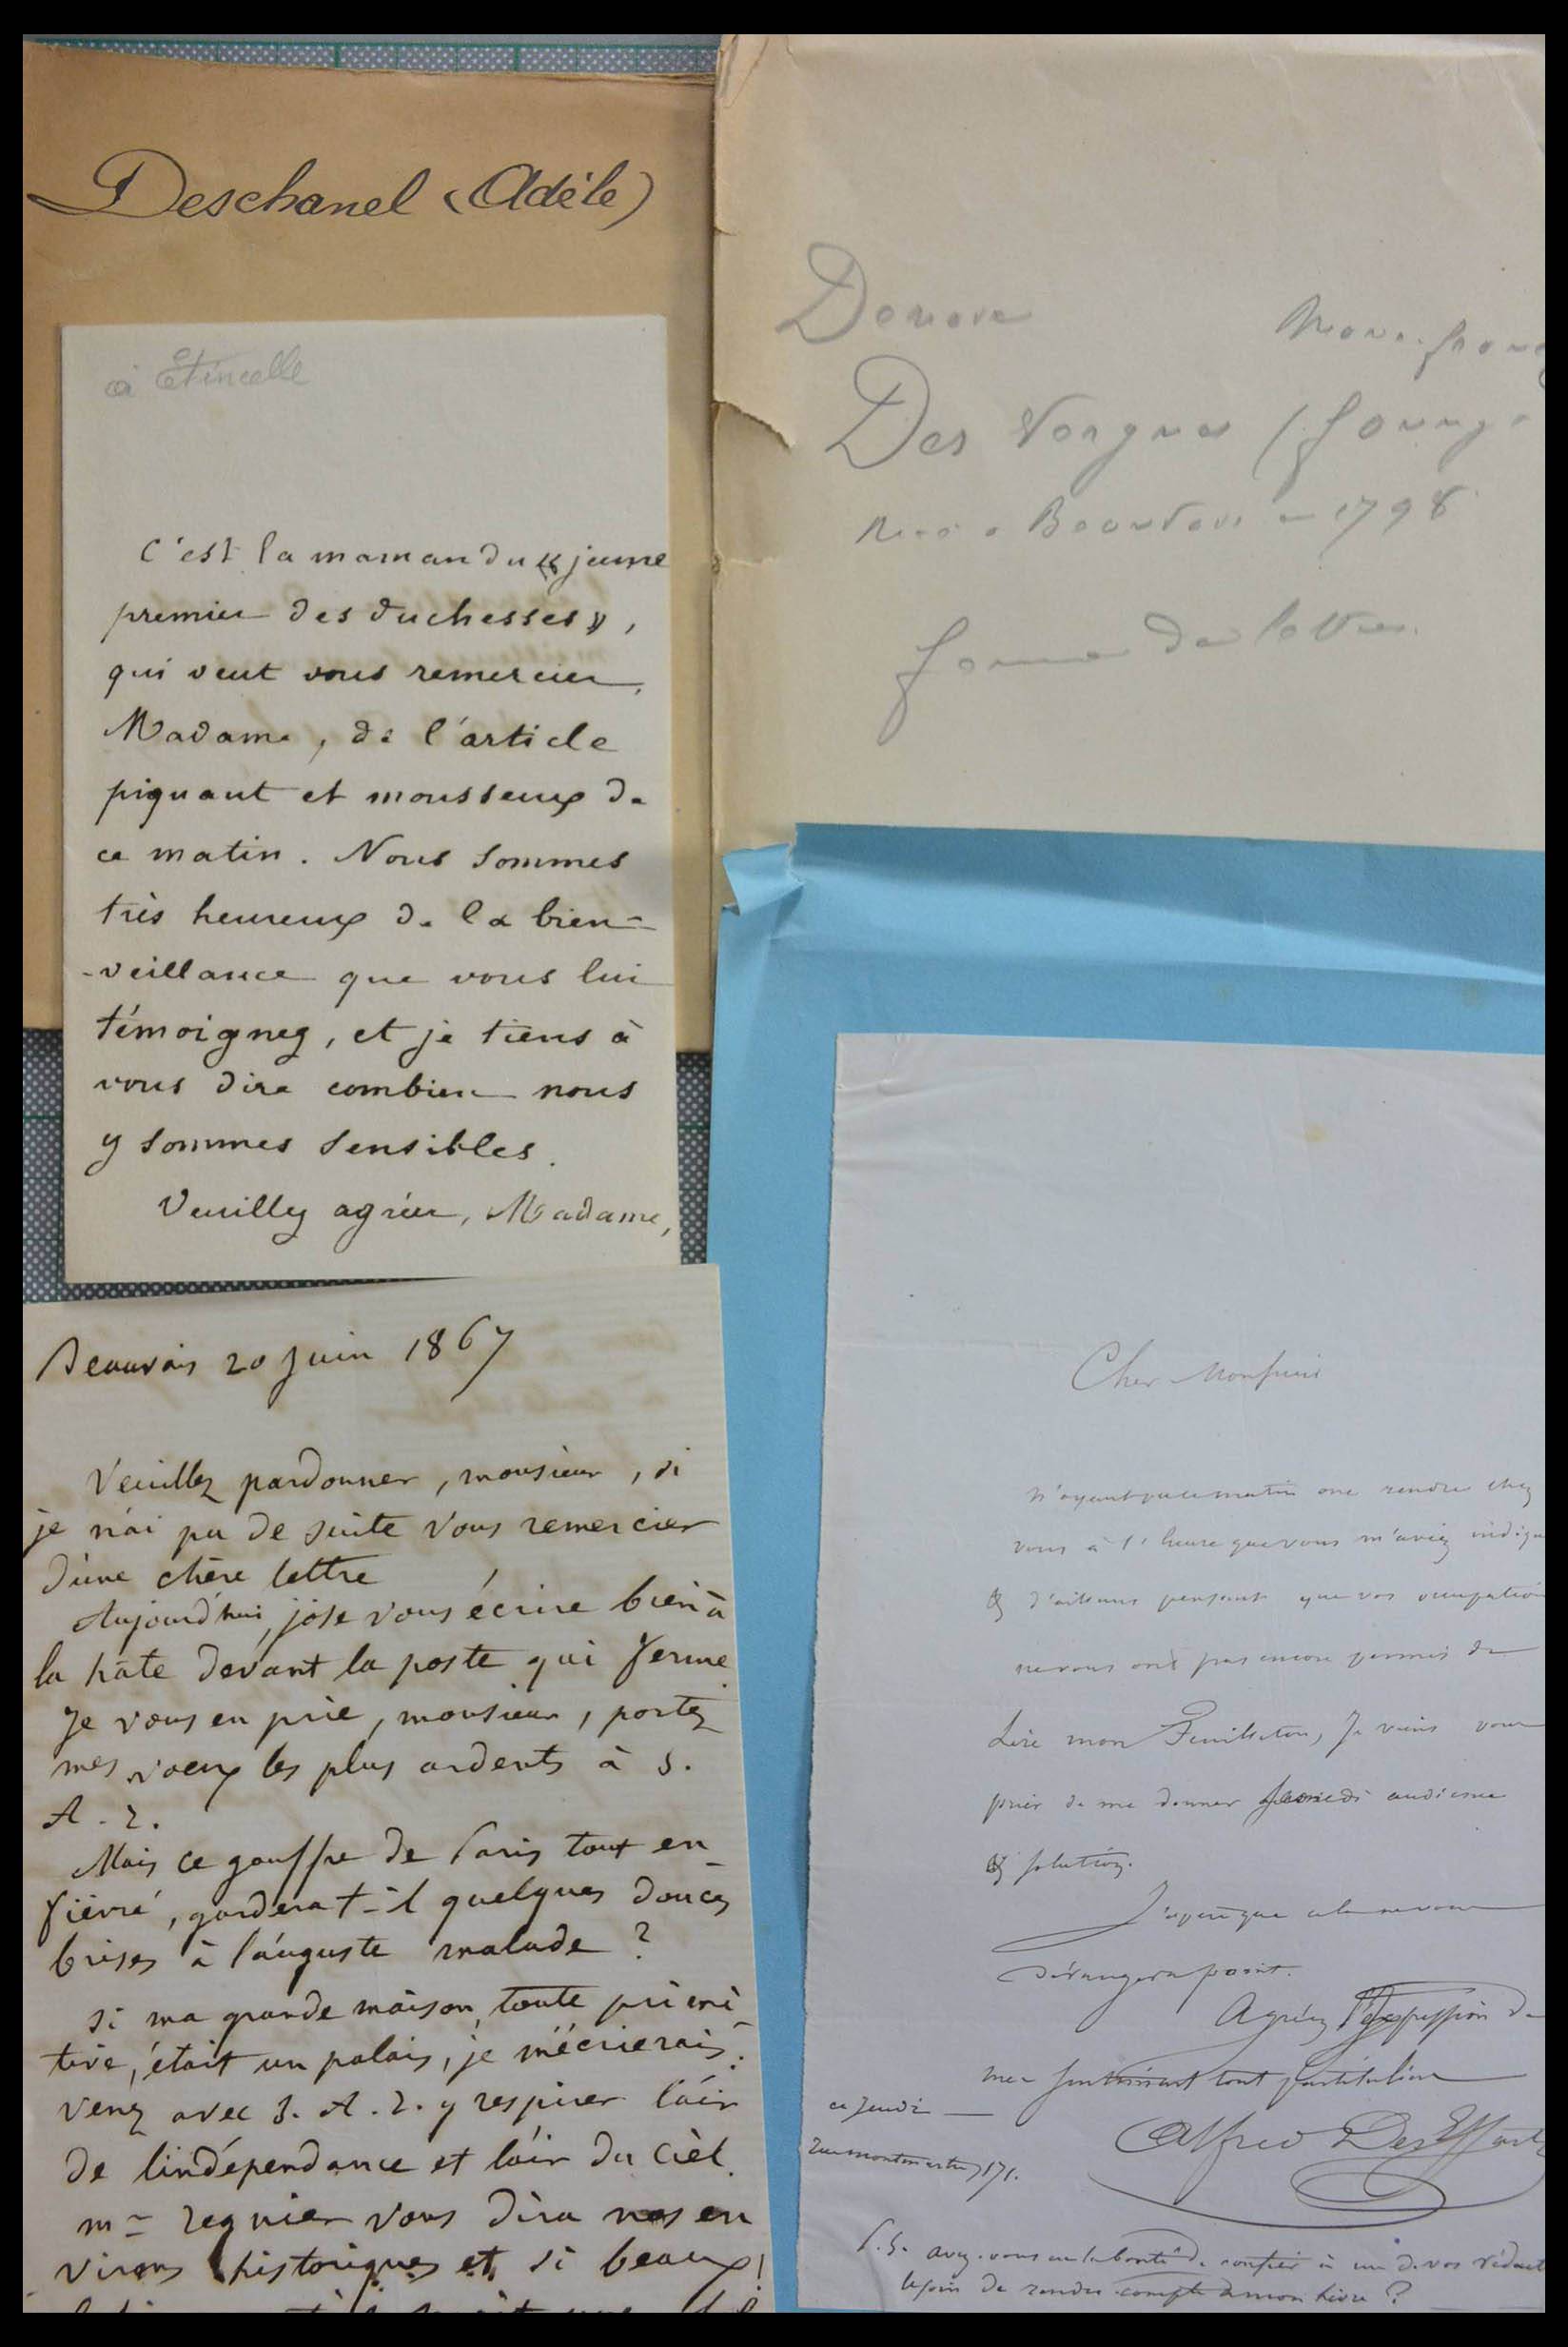 Deschanel (Adèle)
à Etincelle
C'est la maman du « jeune
premier des duchesses »,
qui veut vous remercier,
Madame, de l'article
piquant et mousseux de
ce matin. Nous sommes
très heureux de la bien-
-veillance que vous lui
témoignez, et je tiens à
vous dire combien nous
y sommes sensibles.
Veuillez agréer, Madame,
Beauvais 20 juin 1867
Veuillez pardonner, monsieur, si
je n'ai pu de suite vous remercier
d'une chère lettre
Aujourd'hui, j'ose vous écrire bien à
la hâte devant la poste qui ferme.
Je vous en prie, monsieur, portez
mes voeux les plus ardents à S.
A. I.
Mais ce gouffre de Paris tout en
fièvré, gardera t-il quelques douces
brises à l'auguste malade ?
Si ma grande maison, toute primi
tive, était un palais, je m'écrierais :
venez avec S. A. I. y respirer l'air
de l'indépendance et l'air du ciel.
mr Regnier vous dira nos en
virons historiques et si beaux !
Des Vergnes
1798
de lettres
Cher Monsieur
N'ayant pu ce matin me rendre chez
vous à l'heure que vous m'aviez indiqu
& d'ailleurs pensant que vos occupation
ne vous ont pas encore permis de
Lire mon Feuilleton, Je viens vous
prier de me donner Samedi audience
& solution.
J'espère que cela ne vous
dérangera point.
Agréez l'Expression de
mes sentiments tout
ce Jeudi
Rue montmartre, 171.
Alfred Des Essarts
P.S. avez-vous eu la bonté de confier à un de vos rédact
le soin de rendre compte de mon livre ?